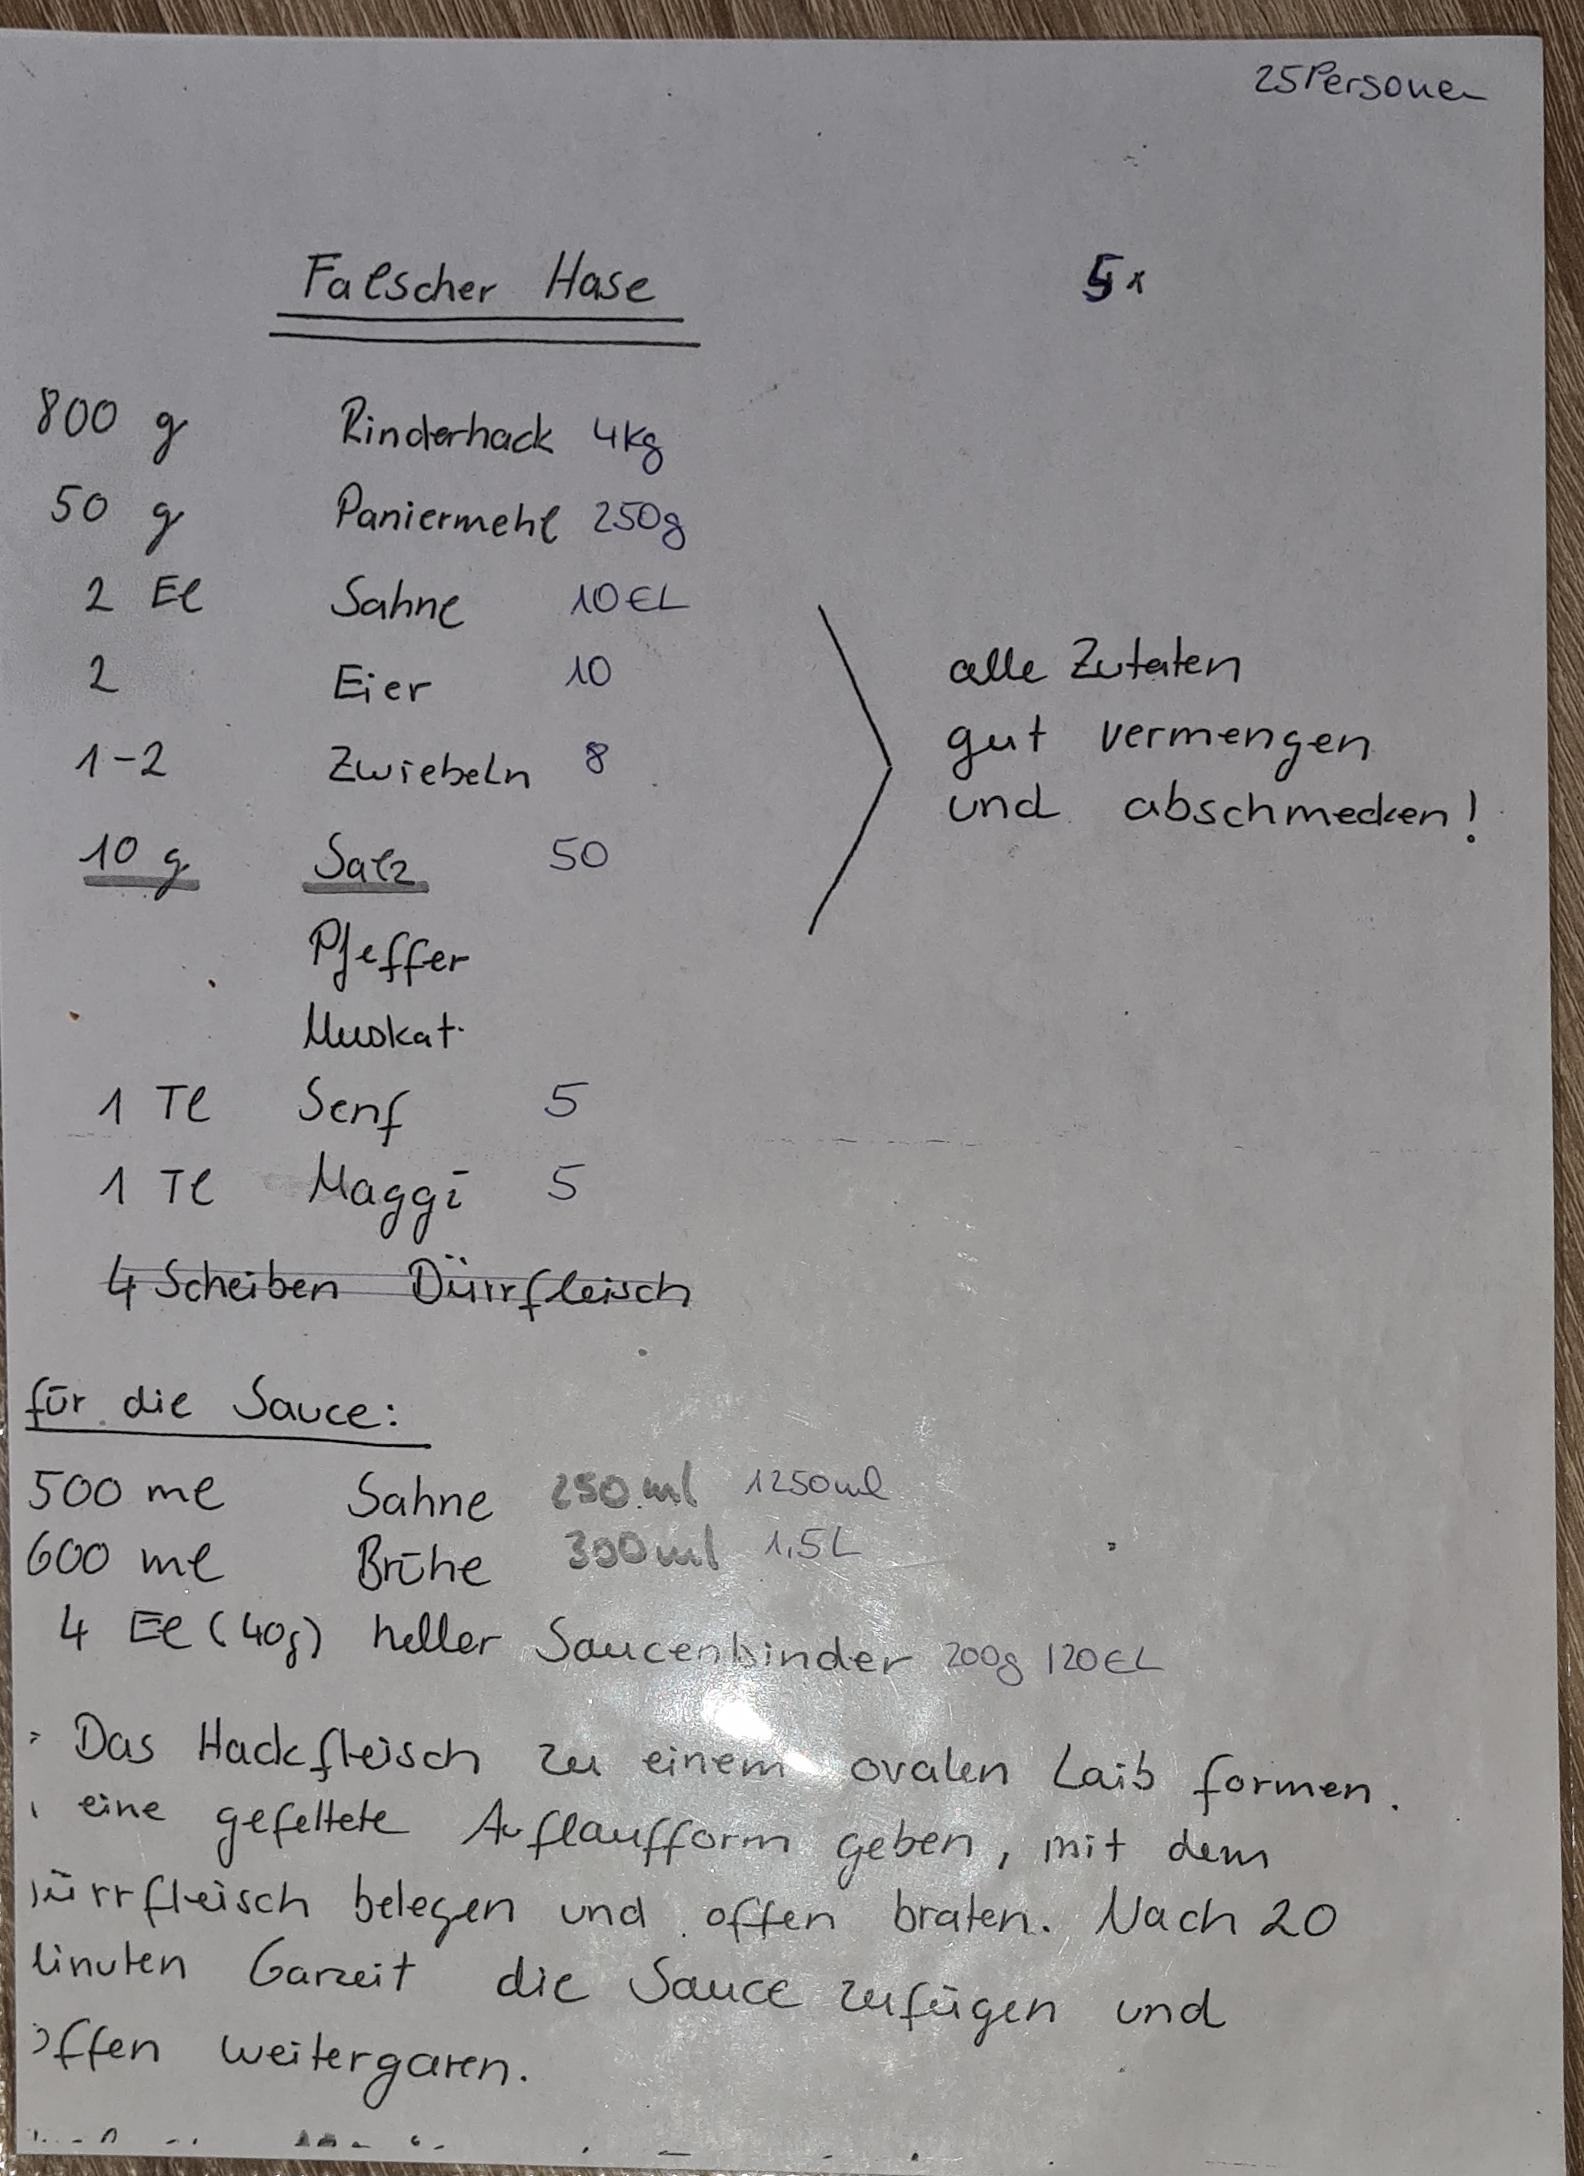 25 Personen
Falscher Hase 5x
800 g Rinderhack 4kg
50 g Paniermehl 250g
2 El Sahne 10EL
2 Eier 10
1-2 Zwiebeln 8
alle Zutaten
gut vermengen
und abschmecken!
10 g Salz 50
Pfeffer
Muskat
1 Tl Senf 5
1 Tl Maggi 5
4 Scheiben Dürrfleisch
für die Sauce:
500 ml Sahne 250 ml 1250ml
600 ml Brühe 300ml 1,5L
4 El (40g) heller Saucenbinder 200g 120EL
Das Hackfleisch zu einem ovalen Laib formen.
eine gefettete Auflaufform geben, mit dem
ürrfleisch belegen und offen braten. Nach 20
inuten Garzeit die Sauce zufügen und
offen weitergaren.